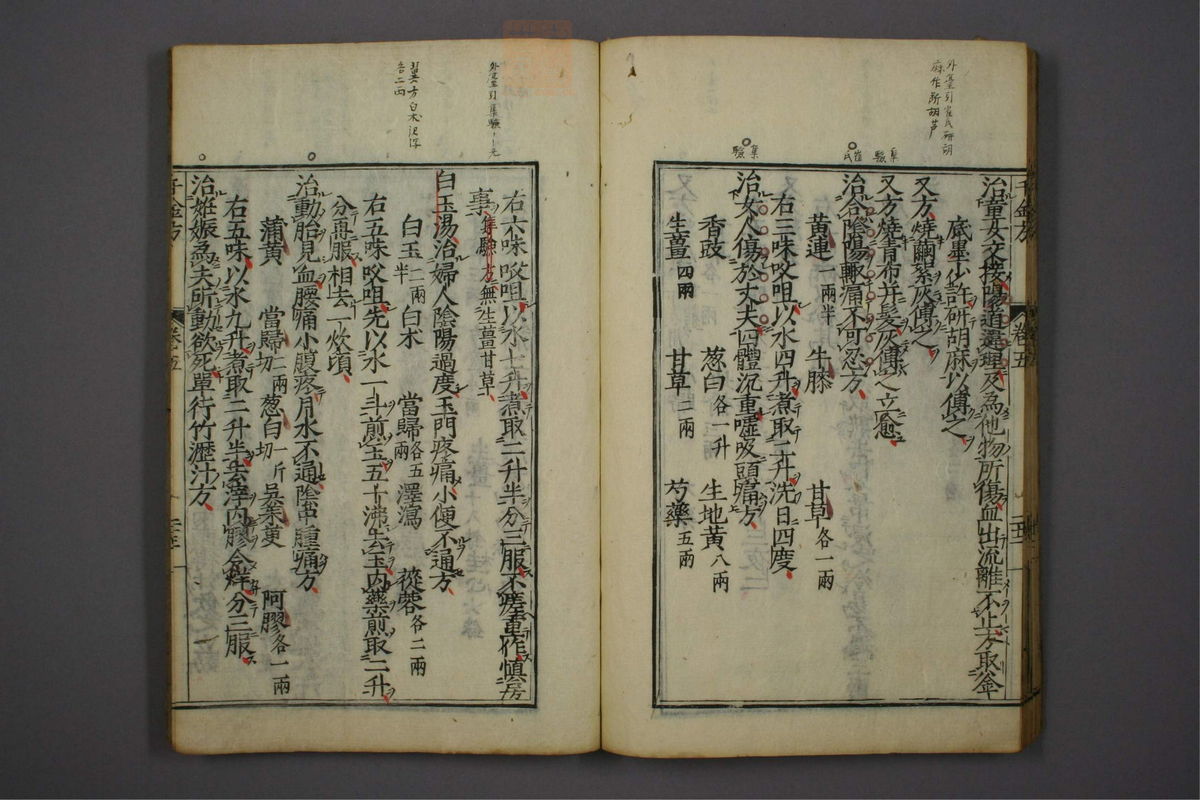 外臺引崔氏研胡
麻作斯胡芦
崔氏
集驗
集驗
治童女交接陽道違理及為他物所傷血出流離不止方取釜
底墨少許研胡麻以傅之
又方燒繭絮灰傅之
又方燒青布并髮灰傅之立愈
治合陰陽輙痛不可忍方
黃連一兩半 牛膝 甘草各一兩
右三味㕮咀以水四升煮取二升洗日四度
治女人傷於丈夫四體沉重噓吸頭痛方
香豉 葱白各一升 生地黃八兩
生薑四兩 甘草二兩 芍藥五兩
千金方 卷五
外臺引集驗
翼方白朮澤瀉
各二兩
右六味㕮咀以水七升煮取二升半分三服不瘥重作慎房
事集驗方無生薑甘草
白玉湯治婦人陰陽過度玉門疼痛小便不通方
白玉一兩半 白朮 當歸各五兩 澤瀉 蓯蓉各二兩
右五味㕮咀先以水一斗煎玉五十沸去玉內藥煎取二升
分再服相去一炊頃
治動胎見血腰痛小腹疼月水不通陰中腫痛方
蒲黃 當歸切二兩 葱白切一斤 吳茱萸 阿膠各一兩
右五味以水九升煮取二升半去滓內膠令烊分三服
治姙娠為夫所動欲死單行竹瀝汁方
千金方 卷五